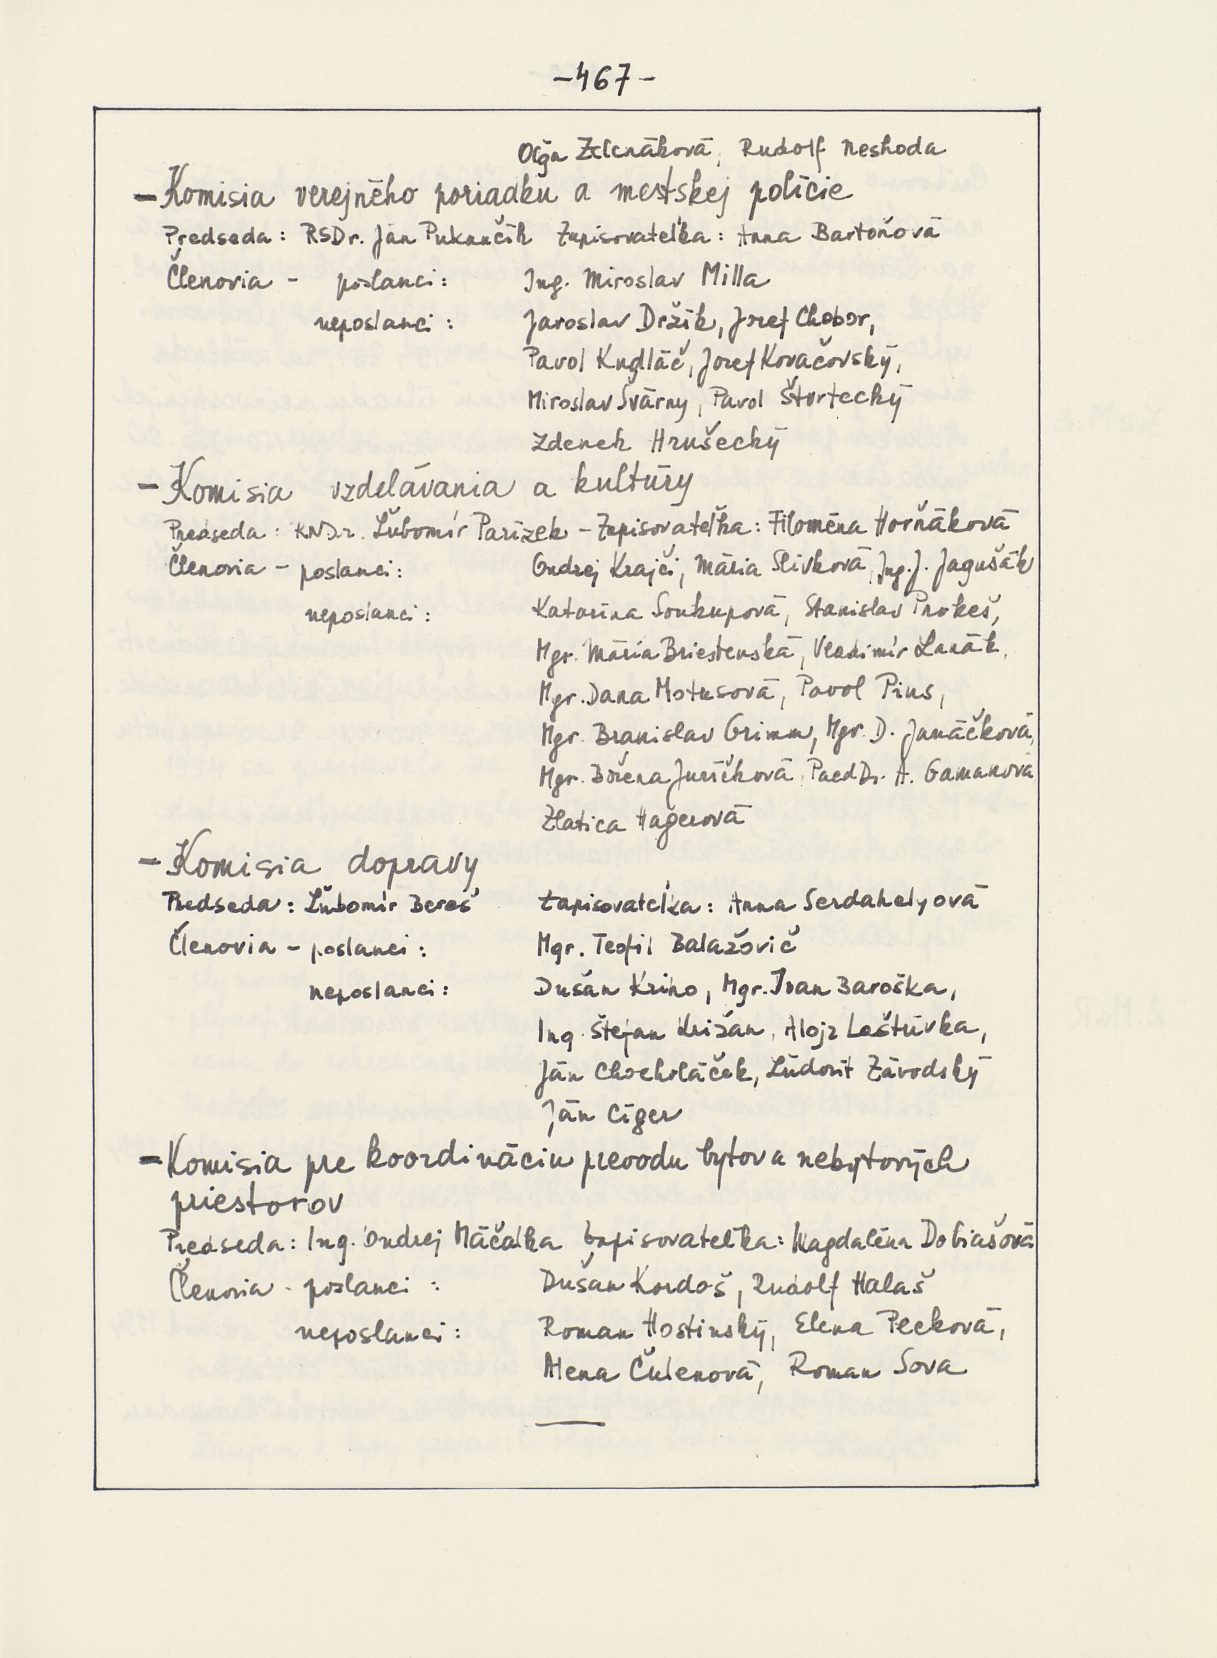 -467-
Oľga Zelenáková, Rudolf Neshoda
- Komisia verejného poriadku a mestskej polície
Predseda: RSDr. Ján Pukančík Zapisovateľka: Anna Bartoňová
Členovia - poslanci: Ing. Miroslav Milla
neposlanci: Jaroslav Držík, Jozef Chobor,
Pavol Kudláč, Jozef Kovačovský,
Miroslav Švárny, Pavol Štvrtecký
Zdenek Hrušecký
- Komisia vzdelávania a kultúry
Predseda: Ľubomír Parízek - Zapisovateľka: Filoména Horňáková
Členovia - poslanci: Ondrej Krajči, Mária Slivková, Ing. J. Jagušák
neposlanci: Katarína Soukupová, Stanislav Prokeš,
Mgr. Mária Briestenská, Vladimír Lanák,
Mgr. Dana Motusová, Pavol Pius,
Mgr. Branislav Grimm, Mgr. D. Janáčková,
Mgr. Božena Juríčková, PaedDr. A. Gamanová
Zlatica Hagerová
- Komisia dopravy
Predseda: Ľubomír Bereš Zapisovateľka: Anna Serdahelyová
Členovia - poslanci: Mgr. Teofil Balažovič
neposlanci: Dušan Kriho, Mgr. Ivan Baroška,
Ing. Štefan Križan, Alojz Laštúvka,
Ján Chocholáček, Ľudovít Závodský
Ján Cíger
- Komisia pre koordináciu prevodu bytov a nebytových
priestorov
Predseda: Ing. Ondrej Máčalka Zapisovateľka: Magdaléna Dobiašová
Členovia - poslanci: Dušan Kordoš, Rudolf Halaš
neposlanci: Roman Hostinský, Elena Pecková,
Alena Čulenová, Roman Sova